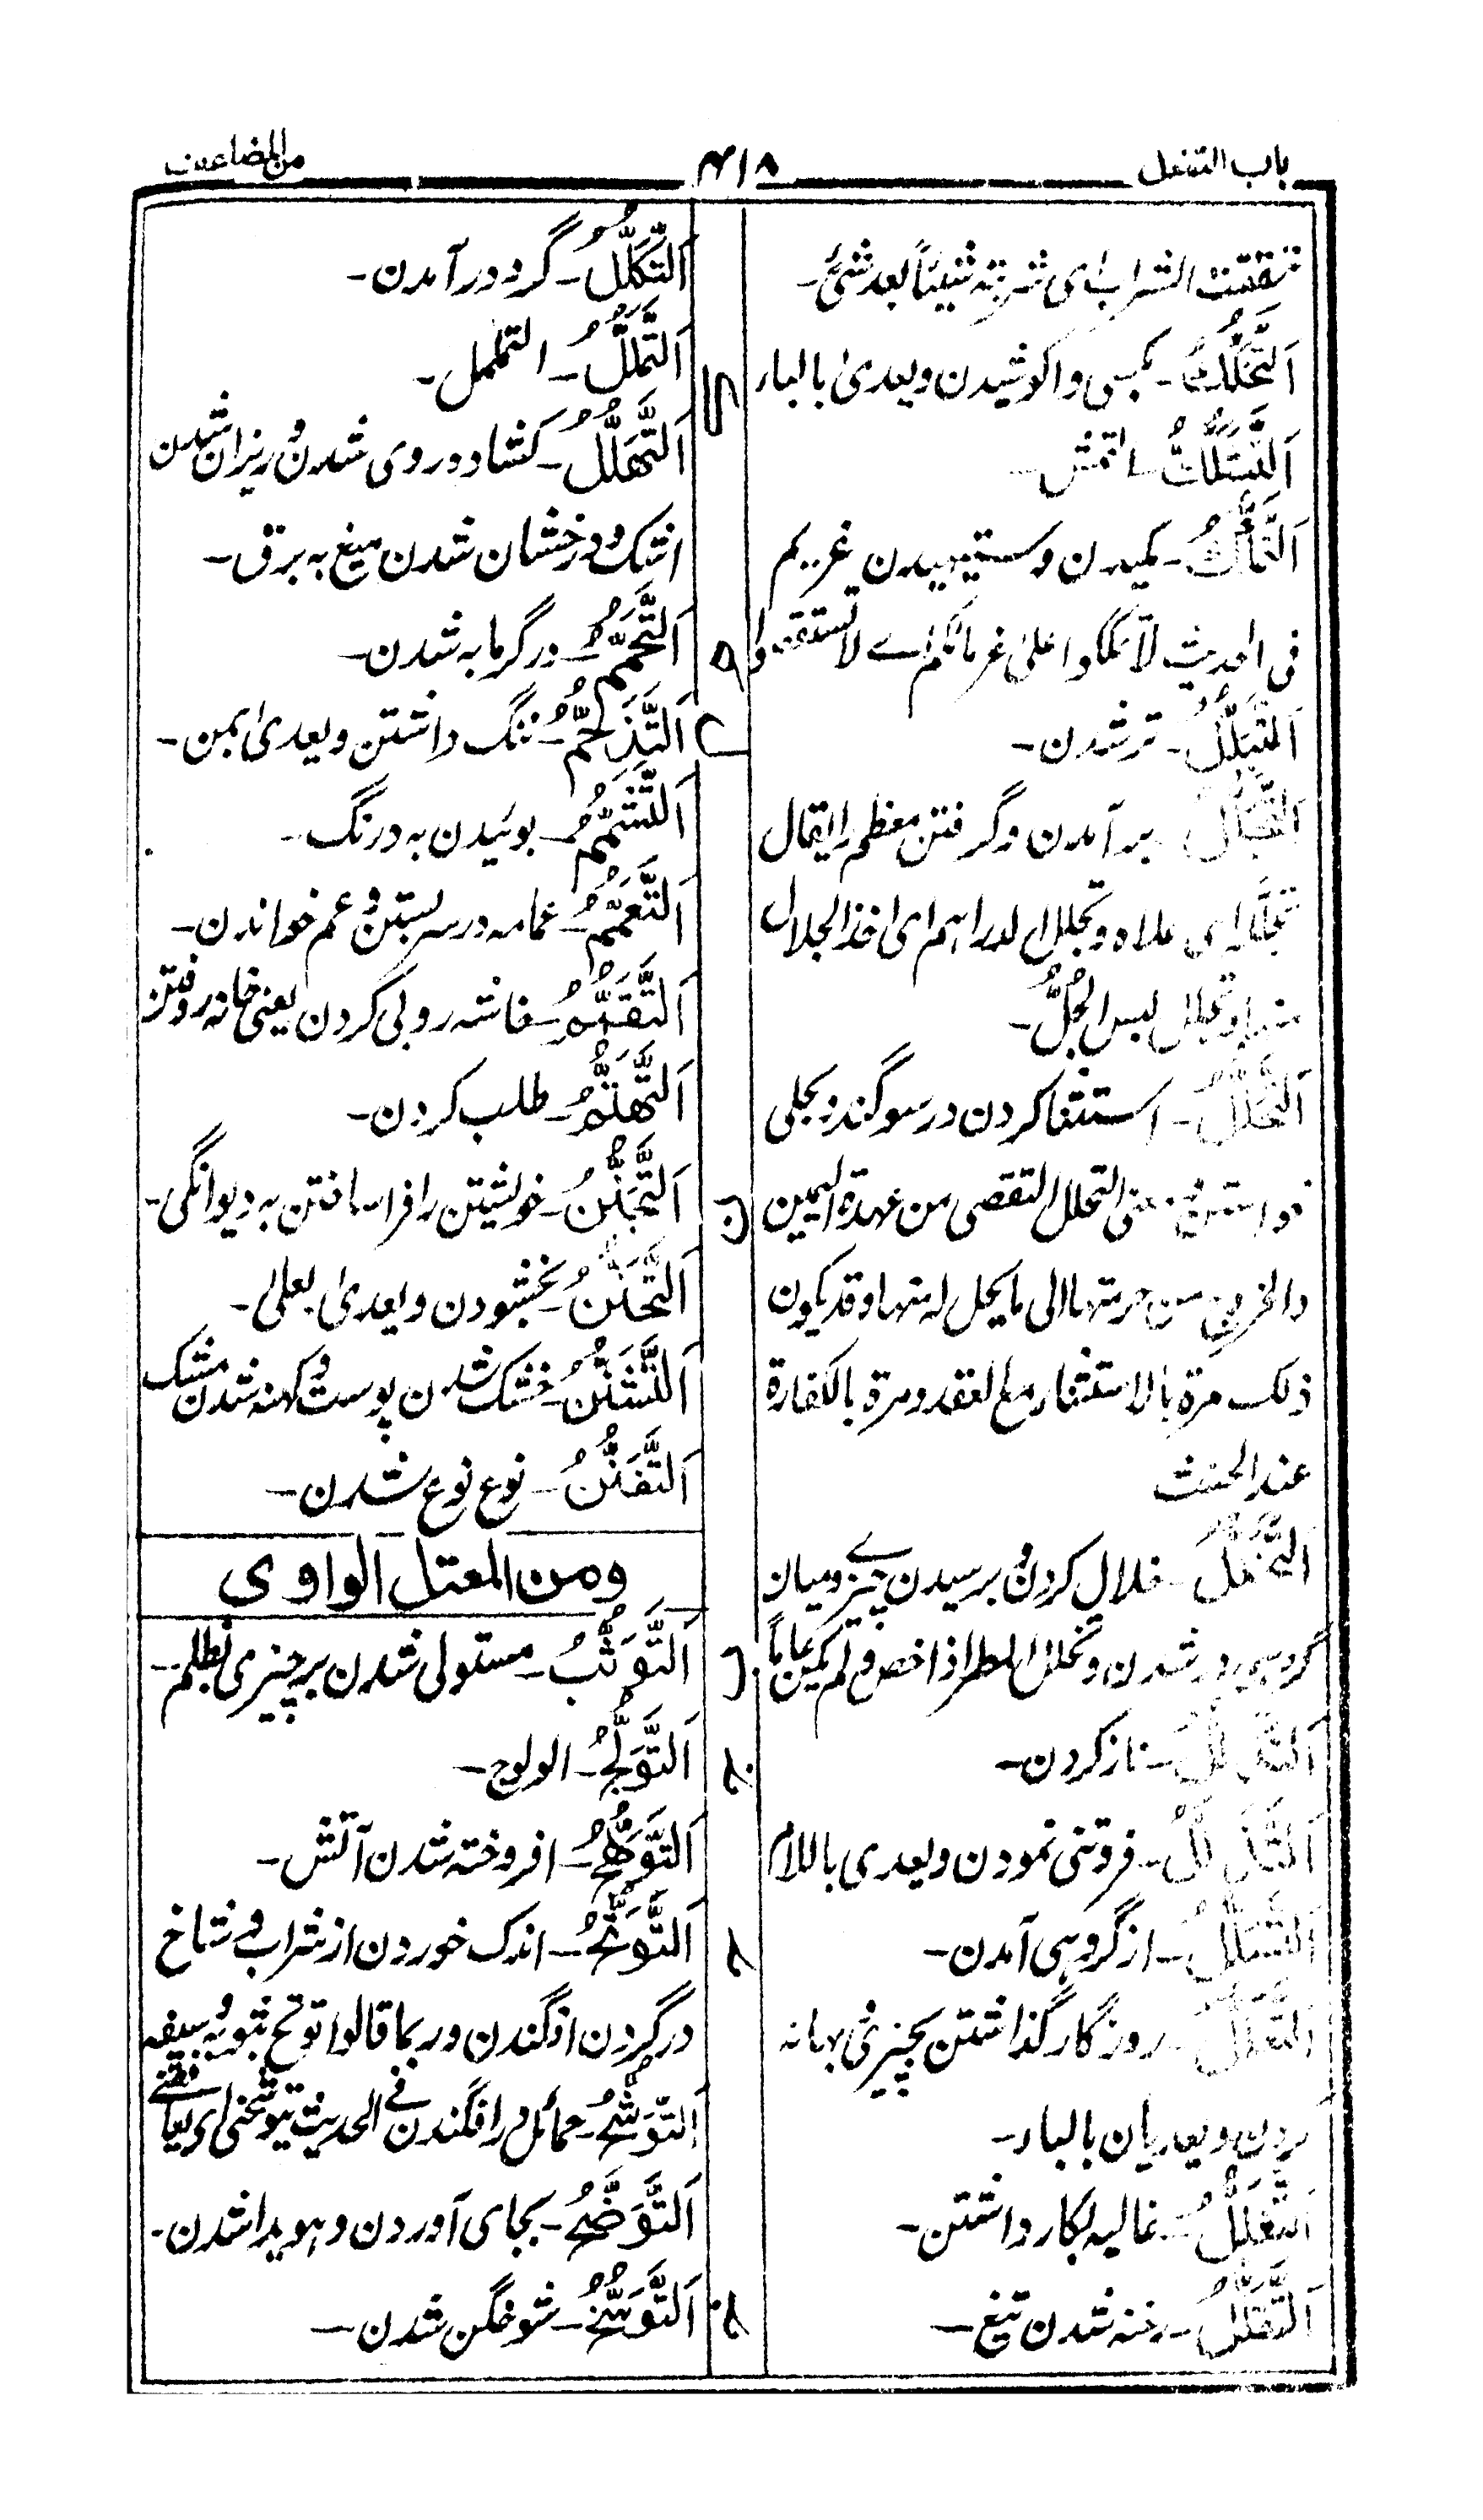 باب التفعل
۴۱۸
من المضاعف
تفققت الشراب ای شربته شیئاً بعد شئ۔
اَلتَّحَكُّكُ۔ بکسی واکوشیدن ویعدیٰ بالباء
اَلتَّمَكُّكُ۔ مکیدن وستیهیدن غریم
فی الحدیث لا تمککوا علیٰ غرمائکم اے لا تستقضوا
اَلتَّبَلُّلُ۔ تر شدن۔
اَلتَّجَلُّلُ۔ بر آمدن وگرفتن معظم را یقال
تجلّله ای علاه وتجلل الدراهم ای اخذ الجلال
منها وتجلل لبس الجُلَّ۔
اَلتَّحَلُّلُ۔ استثنا کردن در سوگند وبحلی
معنی التحلل التقصی من عهدة الیمین
والخروج من حرمتها الی ما یحل له منها وقد یکون
ذلک مرة بالاستثناء مع العقد ومرة بالکفارة
عند الحنث
اَلتَّخَلُّلُ۔ خلال کردن وبرسیدن چیزے ومیان
گروهی در شدن وتخلل المطر اذا خص ولم یکن عاماً
اَلتَّدَلُّلُ۔ ناز کردن۔
اَلتَّذَلُّلُ۔ فروتنی نمودن ویعدی باللام
اَلتَّسَلُّلُ۔ از گروهی آمدن۔
اَلتَّعَلُّلُ۔ روزگار گذاشتن بچیزی وبهانه
کردن ویعدیان بالباء۔
اَلتَّغَلُّلُ۔ غالیه بکار داشتن۔
اَلتَّفَلُّلُ۔ رخنه شدن تیغ۔
اَلتَّكَلُّلُ۔ گرد در آمدن۔
ل
اَلتَّمَلُّلُ۔ التململ۔
اَلتَّهَلُّلُ۔ کشاده روی شدن وریزان شدن
اشک ودرخشان شدن میغ به برق۔
م
اَلتَّحَمُّمُ۔ در گرمابه شدن۔
اَلتَّذَمُّمُ۔ ننگ داشتن ویعدیٰ بمن۔
اَلتَّشَمُّمُ۔ بوئیدن به درنگ۔
اَلتَّعَمُّمُ۔ عمامه در سر بستن وعم خواندن۔
اَلتَّقَمُّمُ۔ خاشه روبی کردن یعنی خانه روفتن
طلب کردن۔
ن
اَلتَّجَنُّنُ۔ خویشتن را فرا ساختن به دیوانگی۔
اَلتَّحَنُّنُ۔ بخشودن ویعدیٰ بعلیٰ۔
اَلتَّشَنُّنُ۔ خشک شدن پوست وکهنه شدن مشک
اَلتَّفَنُّنُ۔ نوع نوع شدن۔
ومن المعتل الواوی
ب
اَلتَّوَثُّبُ۔ مستولی شدن بر چیزی بظلم۔
ج
اَلتَّوَلُّجُ۔ الولوج۔
اَلتَّوَهُّجُ۔ افروخته شدن آتش۔
ح
اَلتَّوَتُّحُ۔ اندک خوردن از شراب وشاخ
در گردن افگندن وربما قالوا توشح بثوبه وسیفه
اَلتَّوَشُّحُ۔ حمائل در افگندن فی الحدیث یتوشحنی ای
اَلتَّوَضُّحُ۔ بجای آوردن وهویدا شدن۔
خ
اَلتَّوَسُّخُ۔ شوخگن شدن۔